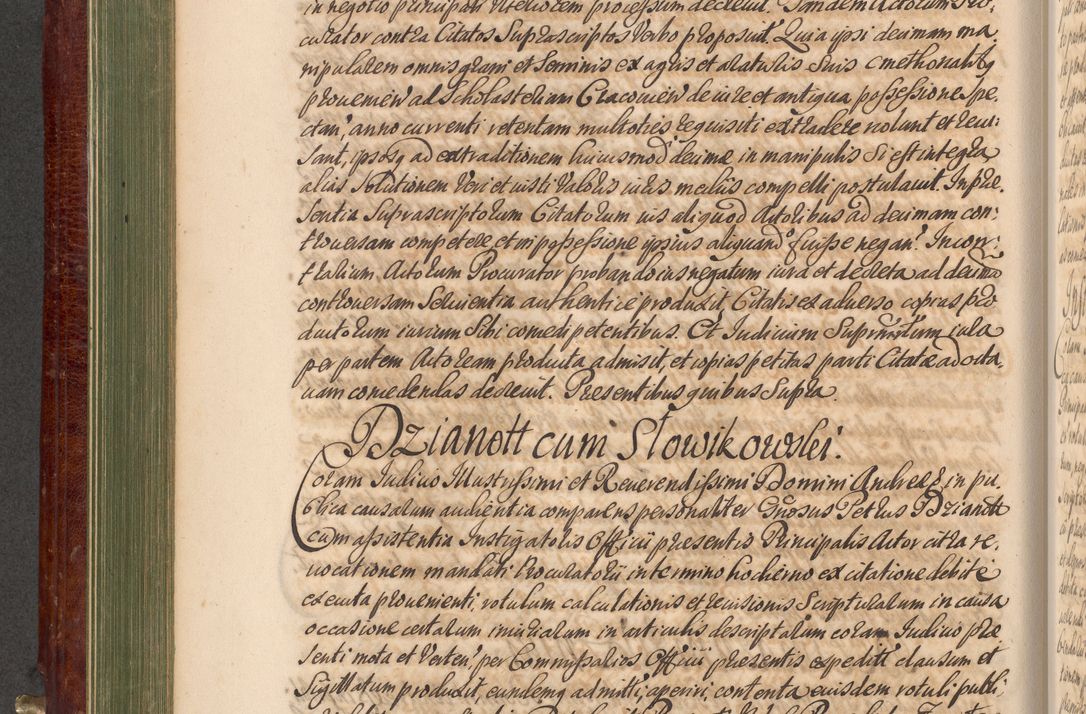 in negotio principali ulteriorem processum decrevit. Tandem Actorum Pro,
curator contra Citatos Suprascriptos Verbo proposuit. Quia ipsi decimam ma,
nipularem omnis grani et Seminis ex agris et araturis Suis cmethonalibq
provenien ad Scholasteriam Cracovien de iure et antiqua possessione Spe,
ctan, anno currenti retentam multoties requisiti extradere nolunt et recu:
Sant, ipsosq ad extraditionem huiusmod decimæ in manipulis Si est integra
alias Solutionem Veri et iusti Valoris iuris mediis compelli postulavit. In præ,
Sentia Suprascriptorum Citatorum ius aliquod Actoribus ad decimam con:
troversam competere, et in possessione ipsius aliquando fuisse negan. In con:
trarium Actorum Procurator probando ius negatum iura et decreta ad decima
controversam Servientia authentice produxit Citatis ex adverso copias pro
ductorum iurium Sibi concedi petentibus. Et Judicium Suprmum iura
per partem Actoream producta admisit, et copias petitas parti Citatæ ad octa,
vam concedendas decrevit. Presentibus quibus Supra.
Dzianott cum Słowikowski.
Coram Judicio Illustrissimi et Reverendissimi Domini Andreæ in pu,
blica causarum audientia comparens personaliter Gnosus Petrus Dzianott
cum assistentia Instigatoris Officii presentis Principalis Actor citra re,
vocationem mandati Procuratorii in termino hodierno ex citatione debite
executa provenienti, rotulum calculationis et revisionis Scripturarum in causa
occasione certarum iniuriarum in articulis descriptarum coram Judicio præ
Senti mota et Verten, per Commissarios Officii presentis expediti clausum et
Sigillatum produxit, eundemq admitti, aperiri, contenta eiusdem rotuli publi,